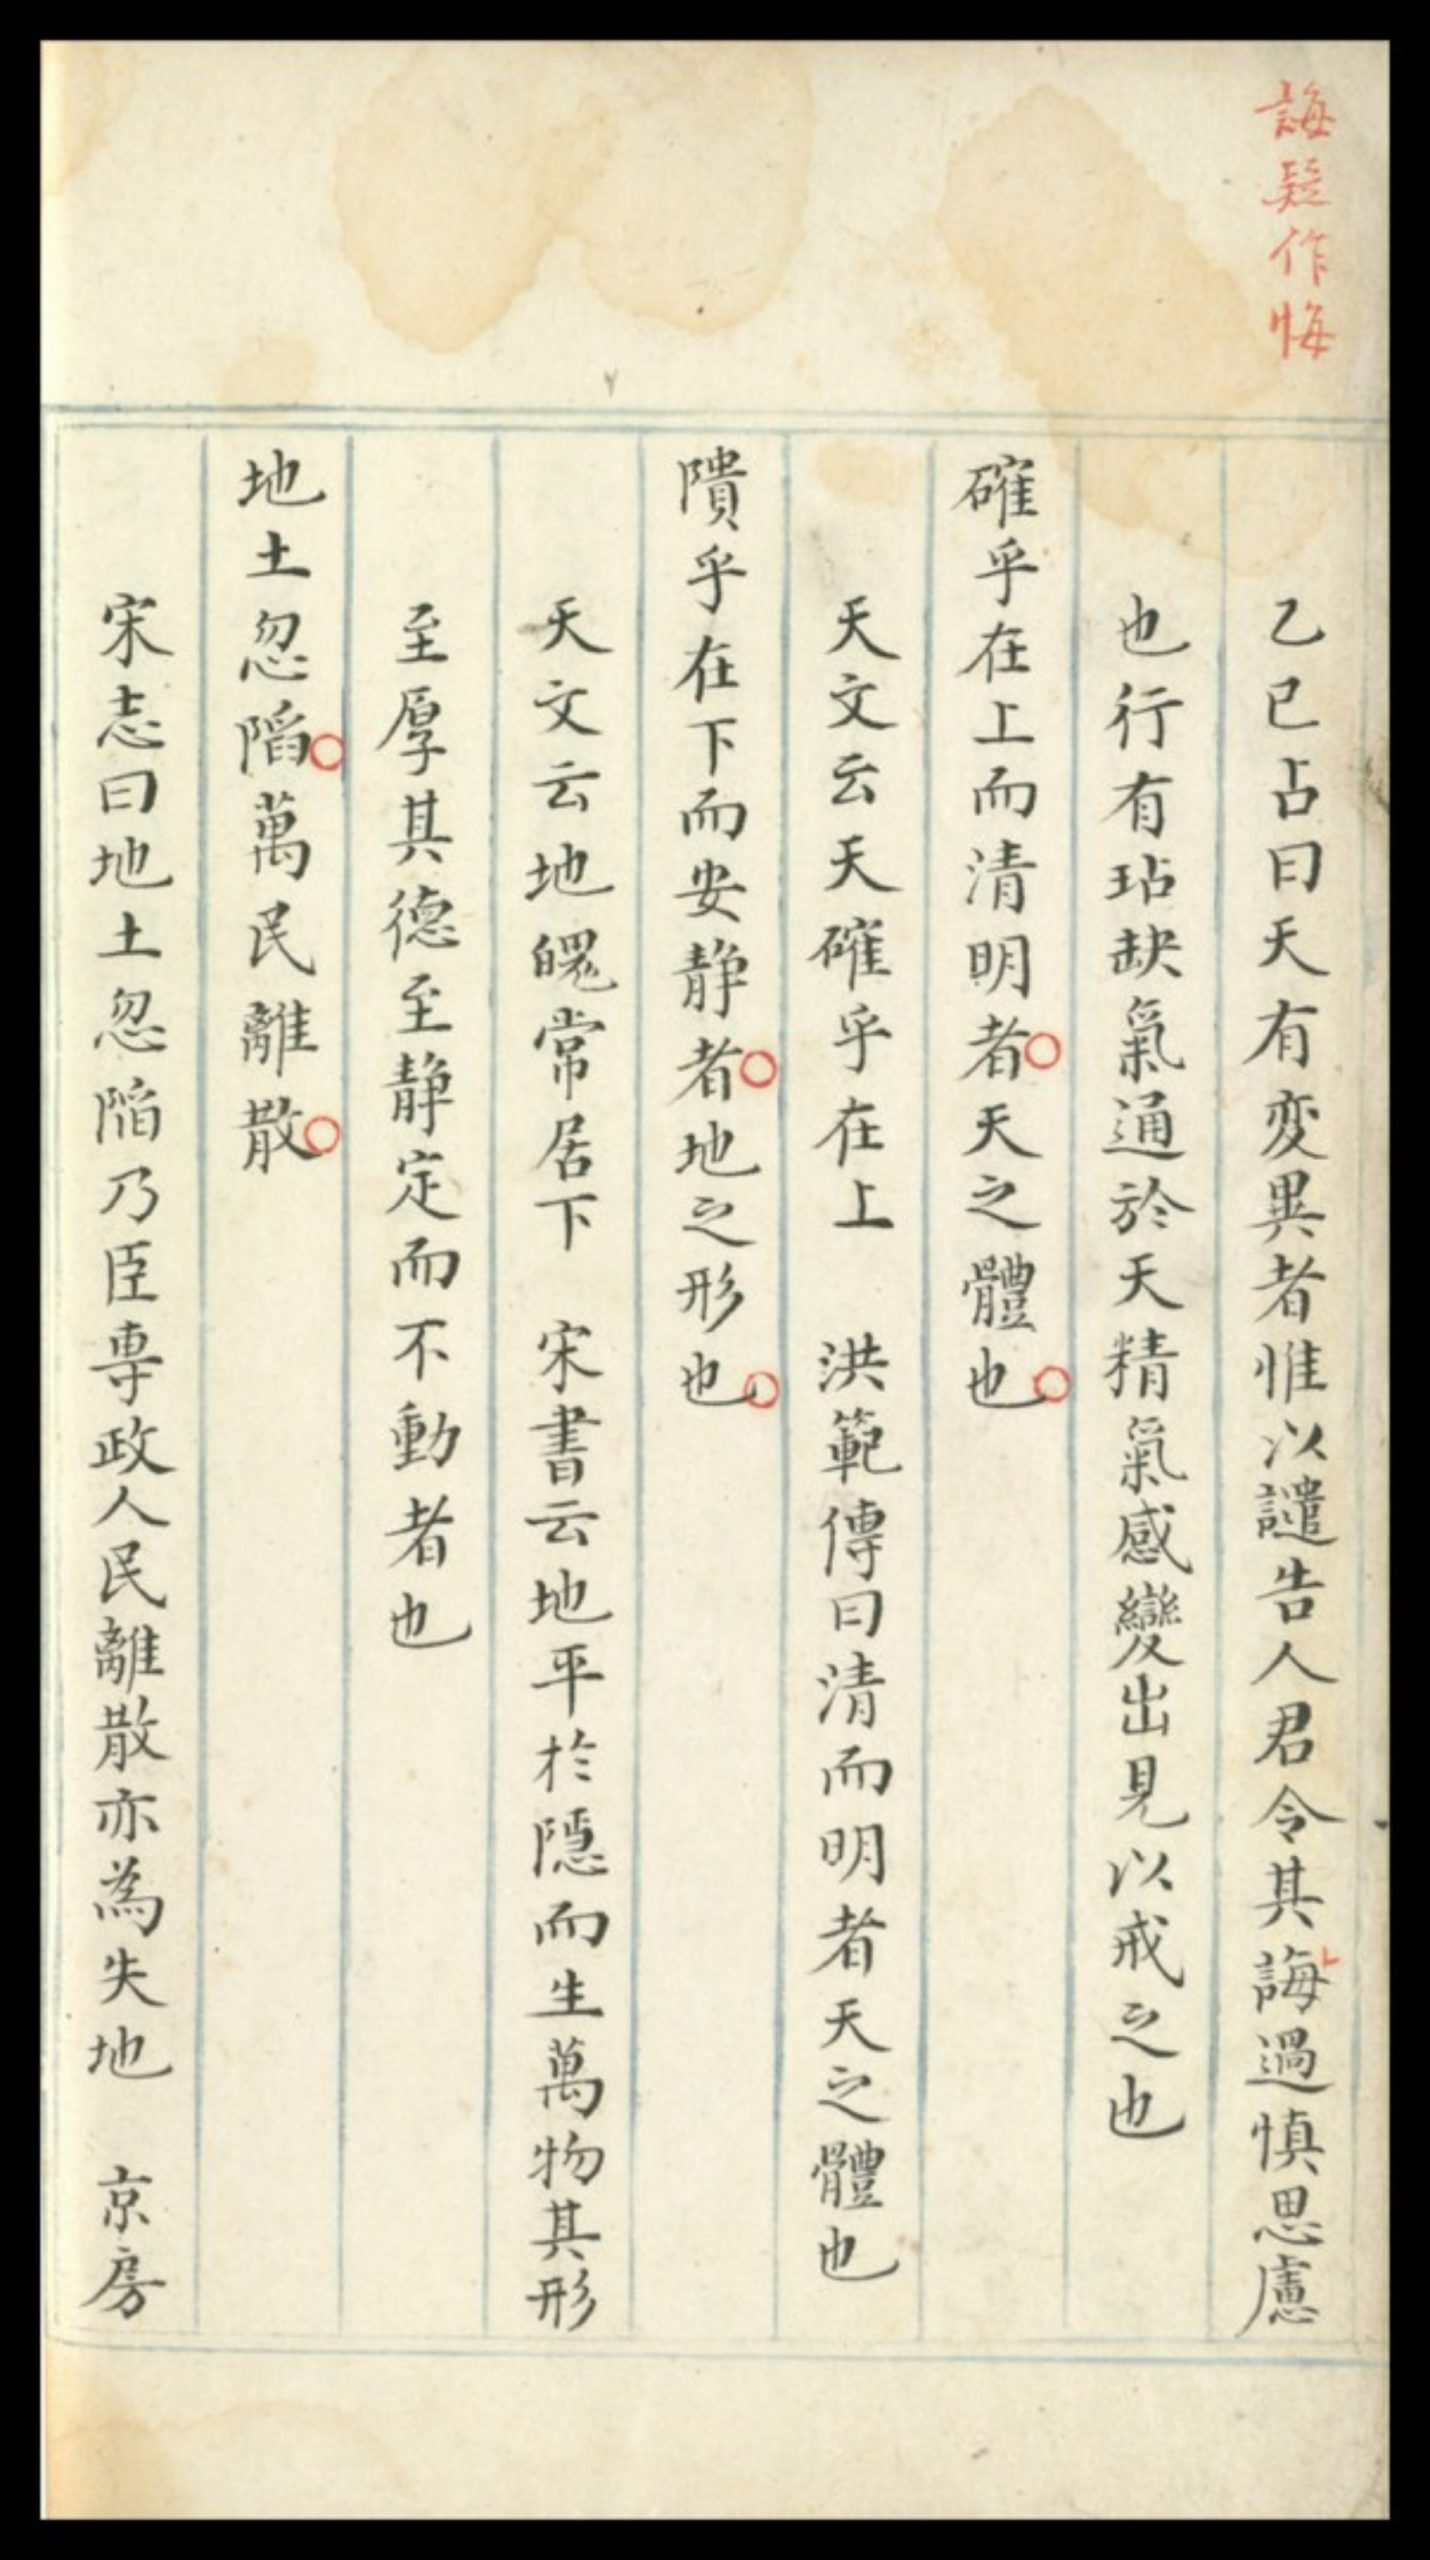 誨疑作悔
乙巳占曰天有変異者惟以譴告人君令其誨過慎思慮
也行有玷缺氣通於天精氣感變出見以戒之也
確乎在上而清明者○天之體也○
天文云天確乎在上　洪範傳曰清而明者天之體也
隤乎在下而安靜者○地之形也○
天文云地魄常居下　宋書云地平於隱而生萬物其形
至厚其德至靜定而不動者也
地土忽陷○萬民離散○
宋志曰地土忽陷乃臣専政人民離散亦為失地　京房